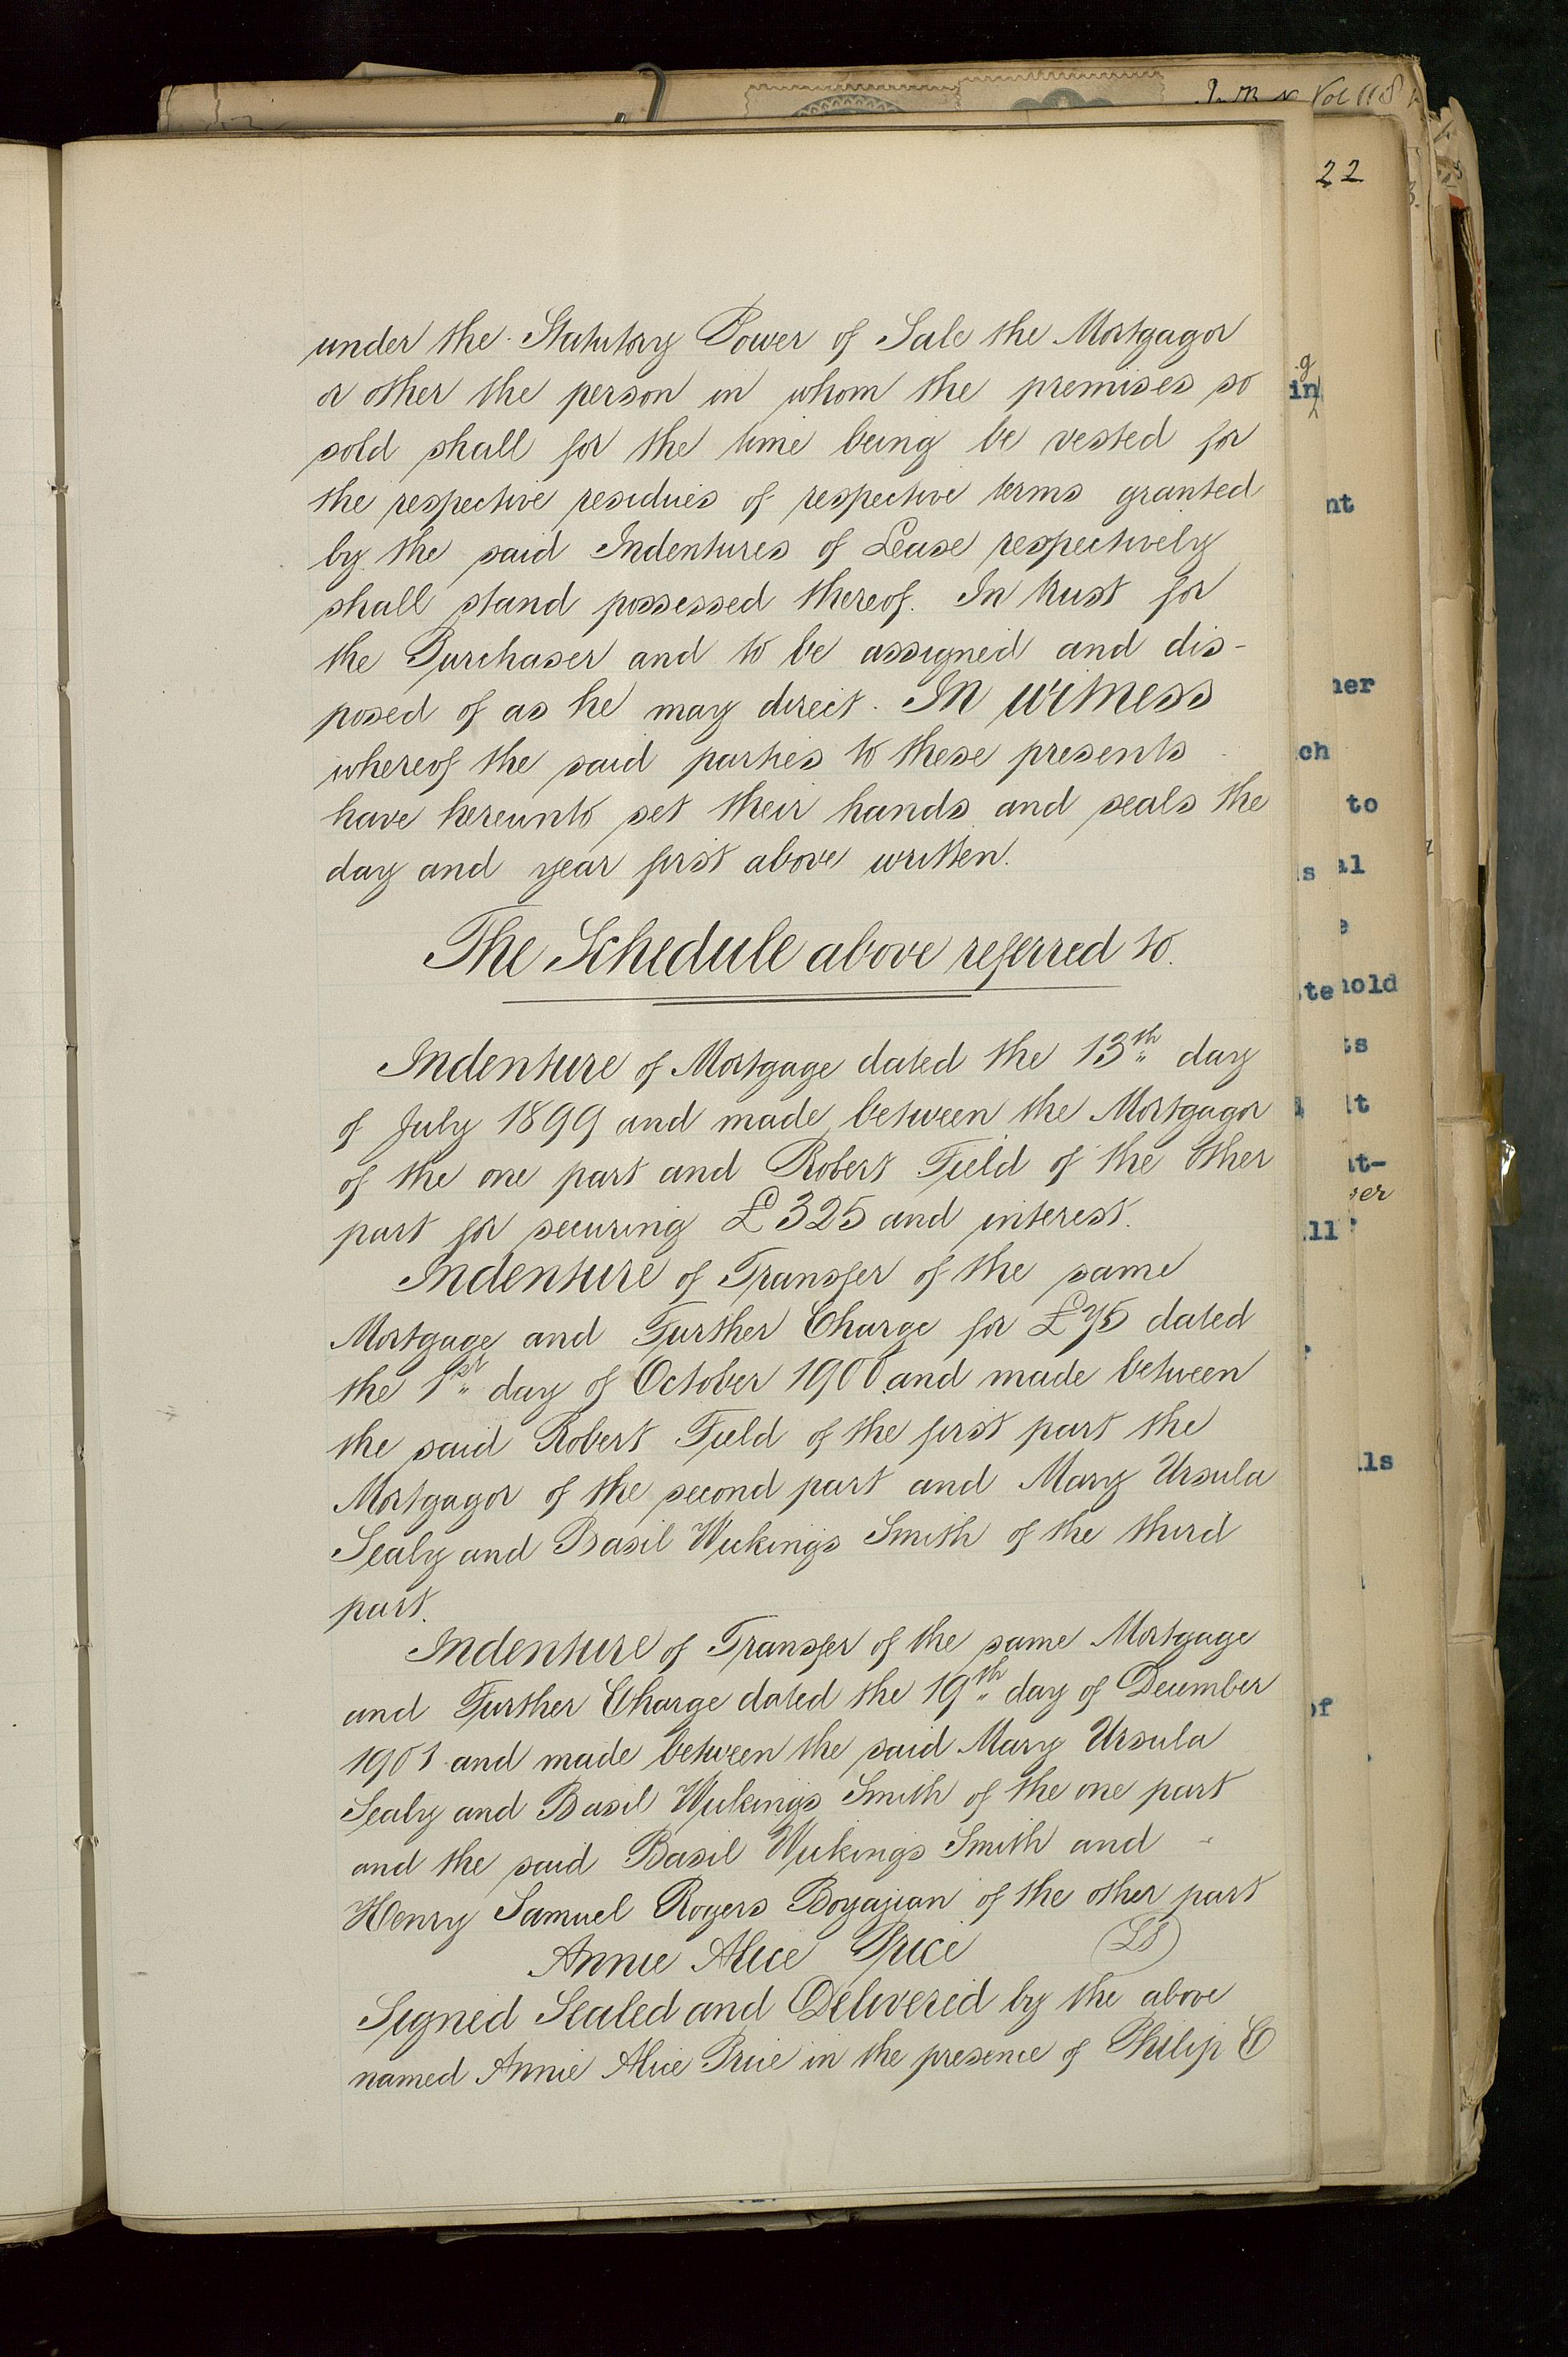 22
under the Statutory Power of Sale the Mortgagor
or other the person in whom the premises so
sold shall for the time being be vested for
the respective residues of respective terms granted
by the said Indentures of Lease respectively
shall stand possessed thereof. In trust for
the Purchaser and to be assigned and dis-
posed of as he may direct. In witness
whereof the said parties to these presents
have hereunto set their hands and seals the
day and year first above written.
The Schedule above referred to.
Indenture of Mortgage dated the 13th day
of July 1899 and made between the Mortgagor
of the one part and Robert Field of the other
part for securing £325 and interest.
Indenture of Transfer of the same
Mortgage and Further Charge for £75 dated
the 1st day of October 1900 and made between
the said Robert Field of the first part the
Mortgagor of the second part and Mary Ursula
Sealy and Basil Wickings Smith of the third
part.
Indenture of Transfer of the same Mortgage
and Further Charge dated the 19th day of December
1901 and made between the said Mary Ursula
Sealy and Basil Wickings Smith of the one part
and the said Basil Wickings Smith and -
Henry Samuel Rogers Boyajian of the other part
Annie Alice Price (LS)
Signed Sealed and Delivered by the above
named Annie Alice Price in the presence of Philip C